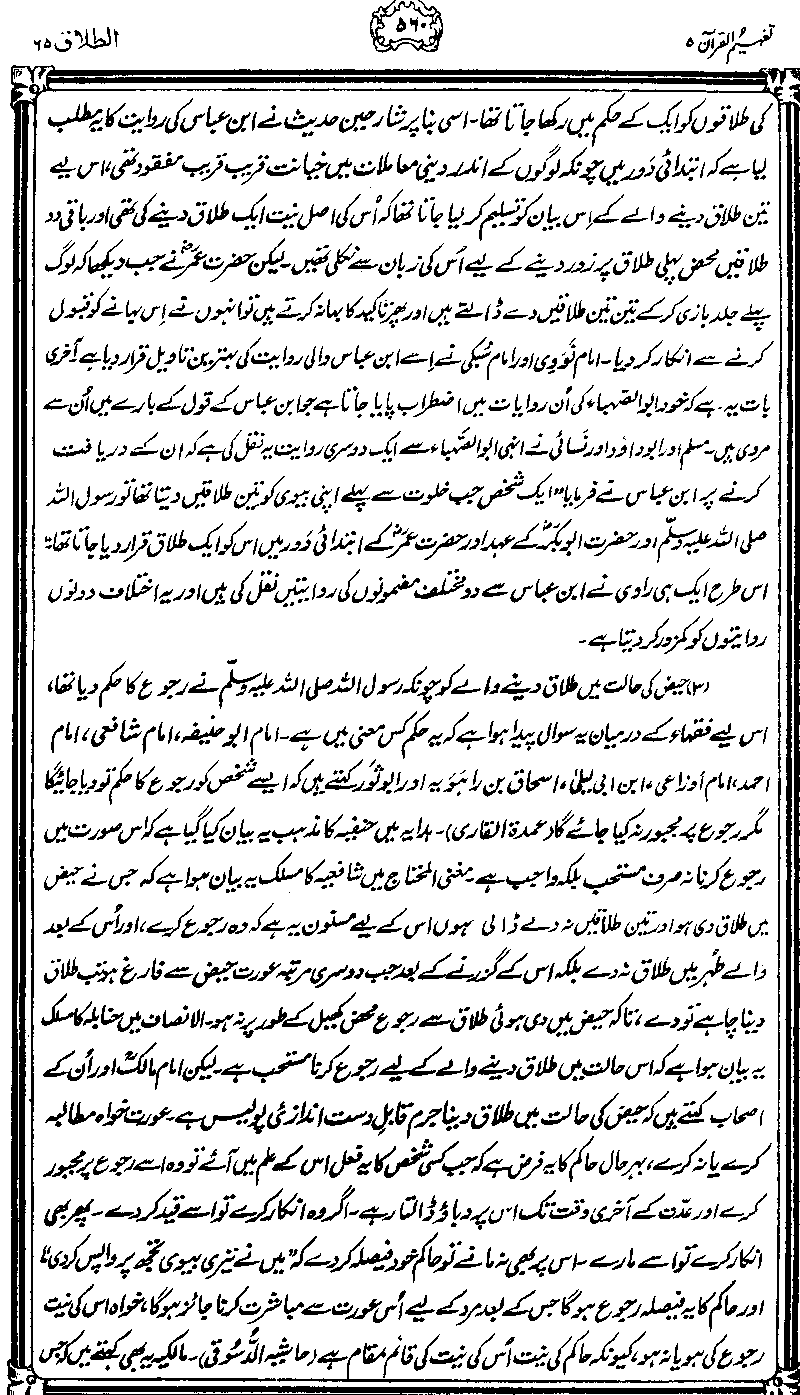 تفہیم القرآن ۵
۵۶۰
الطلاق ۶۵
کی طلاقوں کو ایک کے حکم میں رکھا جاتا تھا۔ اسی بنا پر شارحین حدیث نے ابن عباس کی روایت کا یہ مطلب
لیا ہے کہ ابتدائی دَور میں چونکہ لوگوں کے اندر دینی معاملات میں خیانت قریب قریب مفقود تھی، اس لیے
تین طلاق دینے والے کے اِس بیان کو تسلیم کر لیا جاتا تھا کہ اُس کی اصل نیت ایک طلاق دینے کی تھی اور باقی دو
طلاقیں محض پہلی طلاق پر زور دینے کے لیے اُس کی زبان سے نکلی تھیں۔ لیکن حضرت عمرؓ نے جب دیکھا کہ لوگ
پہلے جلد بازی کر کے تین تین طلاقیں دے ڈالتے ہیں اور پھر تاکید کا بہانہ کرتے ہیں تو انہوں نے اِس بہانے کو قبول
کرنے سے انکار کر دیا۔ امام نَوَوِی اور امام سُبکی نے اِسے ابن عباس والی روایت کی بہترین تاویل قرار دیا ہے آخری
بات یہ ہے کہ خود ابو الصَّہباء کی اُن روایات میں اضطراب پایا جاتا ہے جو ابن عباس کے قول کے بارے میں اُن سے
مروی ہیں۔ مسلم اور ابو داؤد اور نَسائی نے انہی ابو الصَّہباء سے ایک دوسری روایت یہ نقل کی ہے کہ ان کے دریافت
کرنے پر ابن عباس نے فرمایا "ایک شخص جب خلوت سے پہلے اپنی بیوی کو تین طلاقیں دیتا تھا تو رسول اللہ
صلی اللہ علیہ وسلّم اور حضرت ابوبکرؓ کے عہد اور حضرت عمرؓ کے ابتدائی دَور میں اس کو ایک طلاق قرار دیا جاتا تھا"
اس طرح ایک ہی راوی نے ابن عباس سے دو مختلف مضمونوں کی روایتیں نقل کی ہیں اور یہ اختلاف دونوں
روایتوں کو کمزور کر دیتا ہے۔
(۳) حیض کی حالت میں طلاق دینے والے کو چونکہ رسول اللہ صلی اللہ علیہ وسلّم نے رجوع کا حکم دیا تھا،
اس لیے فقہاء کے درمیان یہ سوال پیدا ہوا ہے کہ یہ حکم کس معنی میں ہے۔ امام ابو حنیفہ، امام شافعی، امام
احمد، امام اَوزاعی، ابن ابی لیلیٰ، اسحاق بن راہَوَیہ اور ابو ثَور کہتے ہیں کہ ایسے شخص کو رجوع کا حکم تو دیا جائیگا
مگر رجوع پر مجبور نہ کیا جائے گا (عمدۃ القاری)۔ ہدایہ میں حنفیہ کا مذہب یہ بیان کیا گیا ہے کہ اس صورت میں
رجوع کرنا نہ صرف مستحب بلکہ واجب ہے۔ مغنی المحتاج میں شافعیہ کا مسلک یہ بیان ہوا ہے کہ جس نے حیض
میں طلاق دی ہو اور تین طلاقیں نہ دے ڈالی ہوں اس کے لیے مسنون یہ ہے کہ وہ رجوع کرے، اور اُس کے بعد
والے طُہر میں طلاق نہ دے بلکہ اس کے گزرنے کے بعد جب دوسری مرتبہ عورت حیض سے فارغ ہو تب طلاق
دینا چاہے تو دے، تاکہ حیض میں دی ہوئی طلاق سے رجوع محض کھیل کے طور پر نہ ہو۔ الانصاف میں حنابلہ کا مسلک
یہ بیان ہوا ہے کہ اس حالت میں طلاق دینے والے کے لیے رجوع کرنا مستحب ہے۔ لیکن امام مالکؒ اور اُن کے
اصحاب کہتے ہیں کہ حیض کی حالت میں طلاق دینا جرم قابلِ دست اندازیِ پولیس ہے۔ عورت خواہ مطالبہ
کرے یا نہ کرے، بہر حال حاکم کا یہ فرض ہے کہ جب کسی شخص کا یہ فعل اس کے علم میں آئے تو وہ اسے رجوع پر مجبور
کرے اور عدّت کے آخری وقت تک اس پر دباؤ ڈالتا رہے۔ اگر وہ انکار کرے تو اسے قید کر دے۔ پھر بھی
انکار کرے تو اسے مارے۔ اس پر بھی نہ مانے تو حاکم خود فیصلہ کر دے کہ "میں نے تیری بیوی تجھ پر واپس کر دی"
اور حاکم کا یہ فیصلہ رجوع ہوگا جس کے بعد مرد کے لیے اُس عورت سے مباشرت کرنا جائز ہوگا، خواہ اس کی نیت
رجوع کی ہو یا نہ ہو، کیونکہ حاکم کی نیت اُس کی نیت کی قائم مقام ہے (حاشیۃ الدُّسُوقی)۔ مالکیہ یہ بھی کہتے ہیں کہ جس